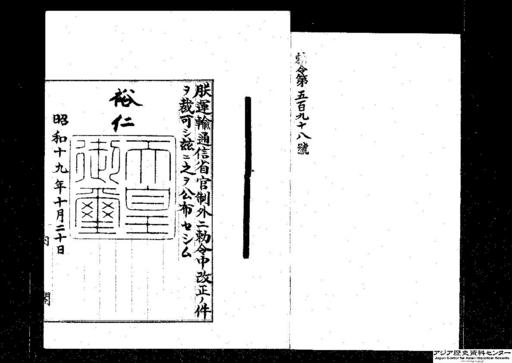 勅令第五百九十八號
朕運輸通信省官制外二勅令中改正ノ件
ヲ裁可シ玆ニ之ヲ公布セシム
裕仁
天皇
御璽
昭和十九年十月二十日
内閣
アジア歴史資料センター
Japan Center for Asian Historical Records